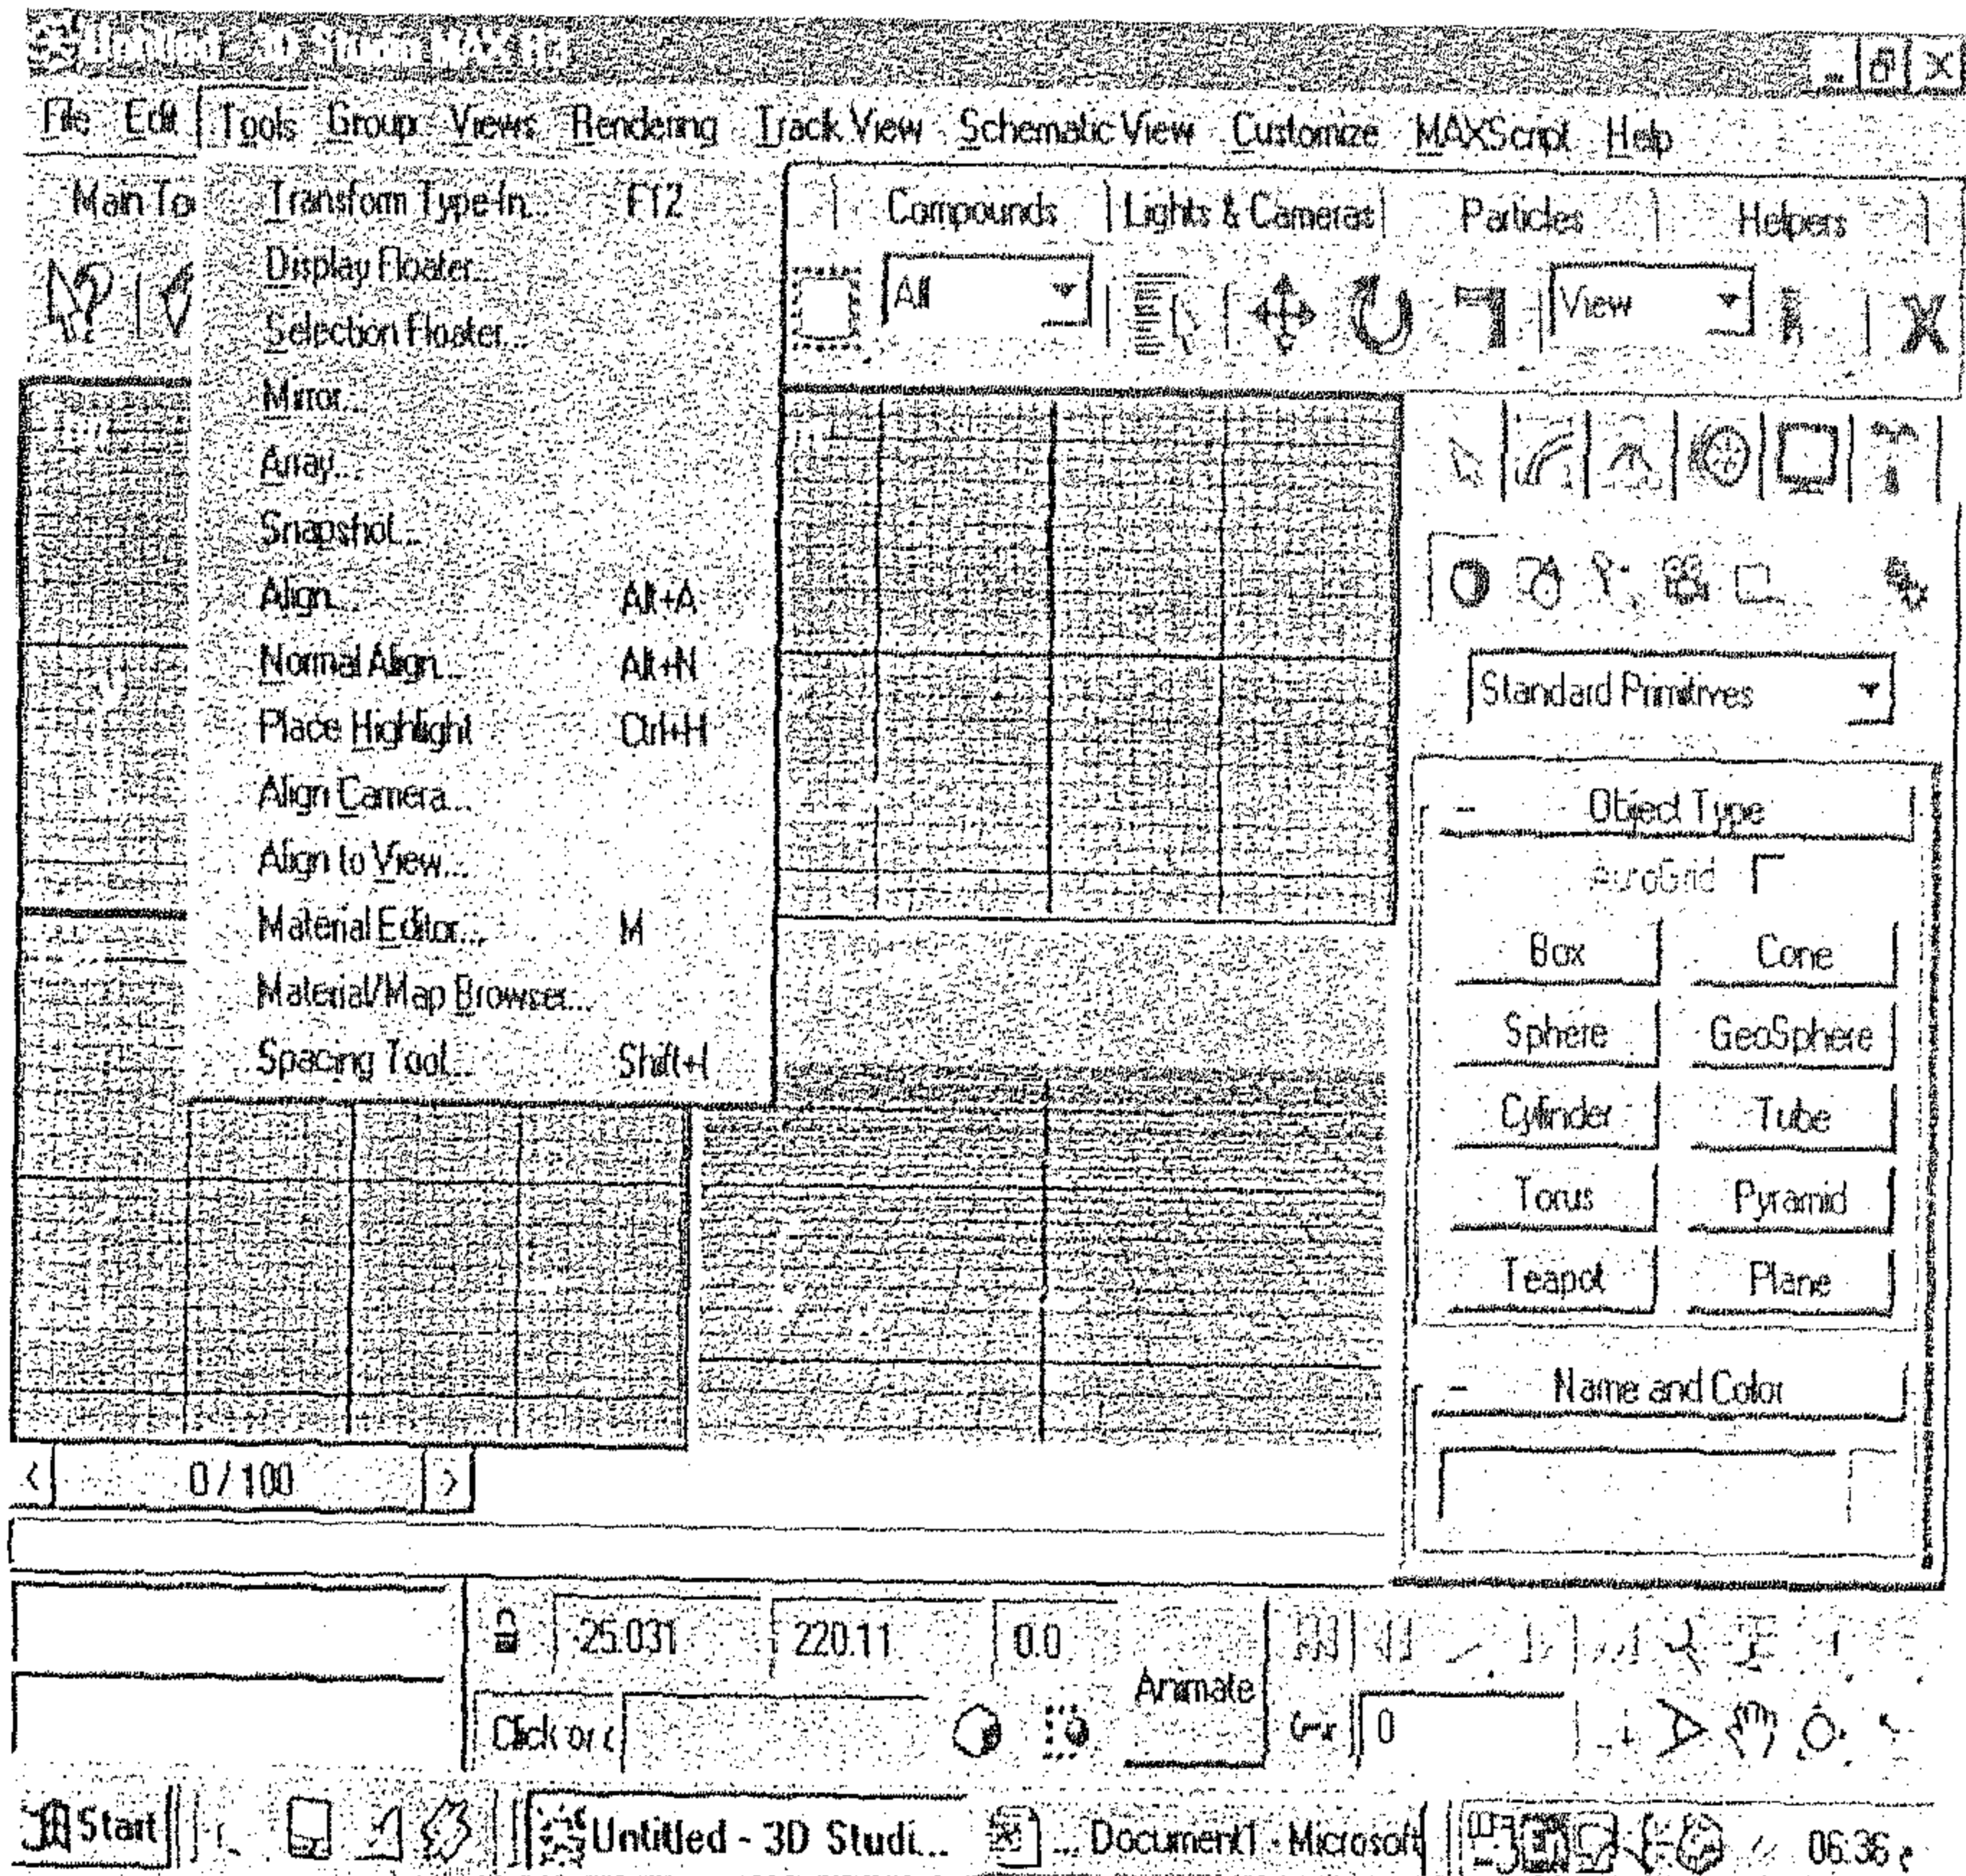 Untitled - 3D Studio MAX R3
File Edit Tools Group Views Rendering Track View Schematic View Customize MAXScript Help
Main To
Compounds Lights & Cameras Particles Helpers
All View
Transform Type-In... F12
Display Floater...
Selection Floater...
Mirror...
Array...
Snapshot...
Align... Alt+A
Normal Align... Alt+N
Place Highlight Ctrl+H
Align Camera...
Align to View...
Material Editor... M
Material/Map Browser...
Spacing Tool... Shift+I
Standard Primitives
Object Type
AutoGrid
Box Cone
Sphere GeoSphere
Cylinder Tube
Torus Pyramid
Teapot Plane
Name and Color
< 0 / 100 >
-25.031 220.11 0.0
Animate
Click or c
0
Start Untitled - 3D Studi... ... Document1 - Microsoft 06:36 م